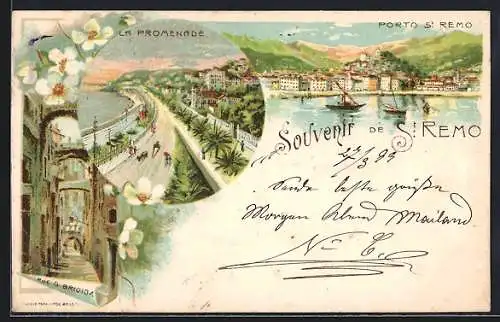 LA PROMENADE
PORTO St REMO
SOUVENIR DE St REMO
27/3 99
Sende beste Grüße
Morgen Abend Mailand
RUE S. BRIGIDA